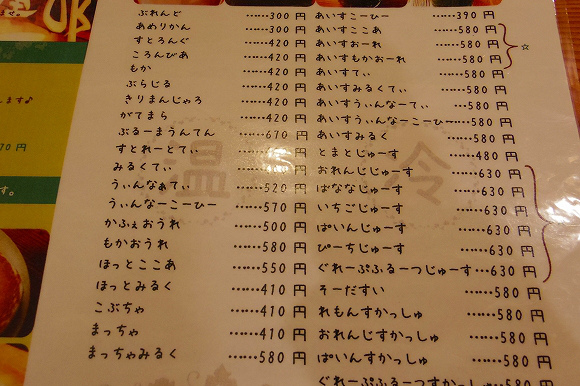 ぶれんど ……300 円
あめりかん ……300 円
すとろんぐ ……420 円
ころんびあ ……420 円
もか ……420 円
ぶらじる ……420 円
きりまんじゃろ ……420 円
がてまら ……420 円
ぶるーまうんてん ……670 円
すとれーとてぃ 円
みるくてぃ 円
うぃんなぁてぃ ……520 円
うぃんなーこーひー ……570 円
かふぇおうれ ……500 円
もかおうれ ……580 円
ほっとここあ ……550 円
ほっとみるく ……410 円
こぶちゃ ……410 円
まっちゃ ……410 円
まっちゃみるく ……580 円
温
あいすこーひー ……390 円
あいすここあ ……580 円
あいすおーれ ……580 円
あいすもかおーれ ……580 円
☆
あいすてぃ ……580 円
あいすみるくてぃ ……580 円
あいすうぃんなーてぃ ……580 円
あいすうぃんなーこーひー ……580 円
あいすみるく ……580 円
とまとじゅーす ……480 円
おれんじじゅーす ……630 円
ばななじゅーす ……630 円
いちごじゅーす ……630 円
ぱいんじゅーす ……630 円
ぴーちじゅーす ……630 円
ぐれーぷふるーつじゅーす …630 円
そーだすい ……580 円
れもんすかっしゅ ……580 円
おれんじすかっしゅ ……580 円
ぱいんすかっしゅ ……580 円
ぐれーぷふるーつすかっしゅ 580 円
冷
ます♪
70 円
す。